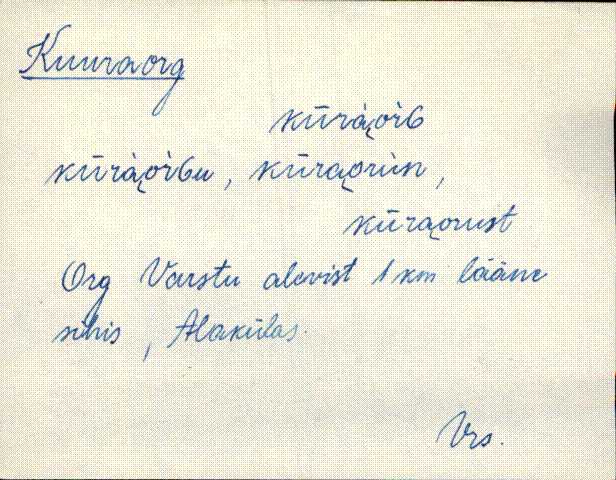 Kuuraorg
kūrà̬oŕG
kūrà̬oŕGu, kūra̬orun,
kūra̬orust
Org Varstu alevist 1 km lääne
sihis, Alakülas.
Vrs.